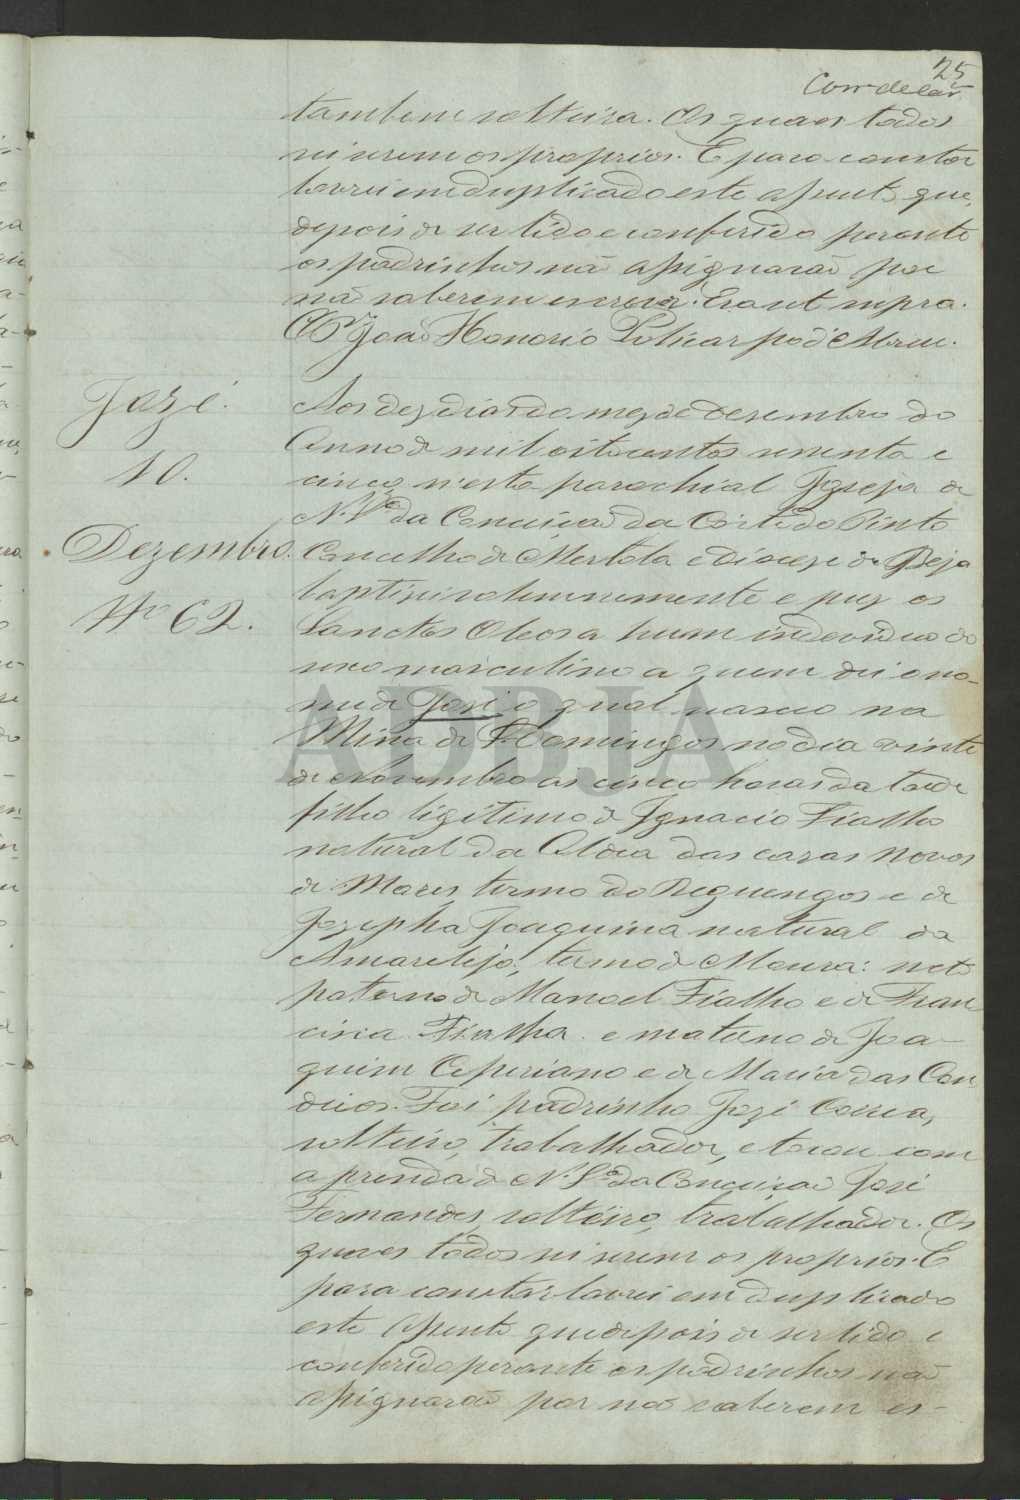 25
tambem solteira. Os quaes todos
sei serem os proprios. E para constar
lavrei em duplicado este assento, que,
depois de ser lido e conferido perante
os padrinhos não assignarão por
não saberem escrever. Era ut supra.
O Pr João Honorio Policarpo d'Abreu.
José.
10.
Dezembro.
Nº 62.
Aos dez dias do mez de Desembro do
Anno de mil oitocentos secenta e
cinco n'esta parochial Igreja de
N. Sª da Conceicão da Côrte do Pinto
Concelho de Mertola e Diocese de Beja
baptisei solemnemente e puz os
Sanctos Oleos a hum individuo do
sexo masculino a quem dei o no-
me de José o qual nasceo na
Mina de S. Domingos no dia vinte
de Novembro as cinco horas da tarde
filho legitimo de Ignacio Fialho
natural da Aldea das cazas novas
de Mares, termo do Reguengos e de
Jozepha Joaquina natural da
Amareleja, termo de Moura: neto
paterno de Manoel Fialho e de Fran
cisca Fialha e materno de Joa-
quim Cipriano e de Maria das Can
deias. Foi padrinho José Correa,
solteiro, trabalhador, e tocou com
a prenda de N. Sª da Conceicão José
Fernandes, solteiro, trabalhador. Os
quaes todos sei serem os proprios. E
para constar lavrei em duplicado
este Assento que depois de ser lido e
conferido perante os padrinhos não
assignarão por não saberem es-
ADBJA